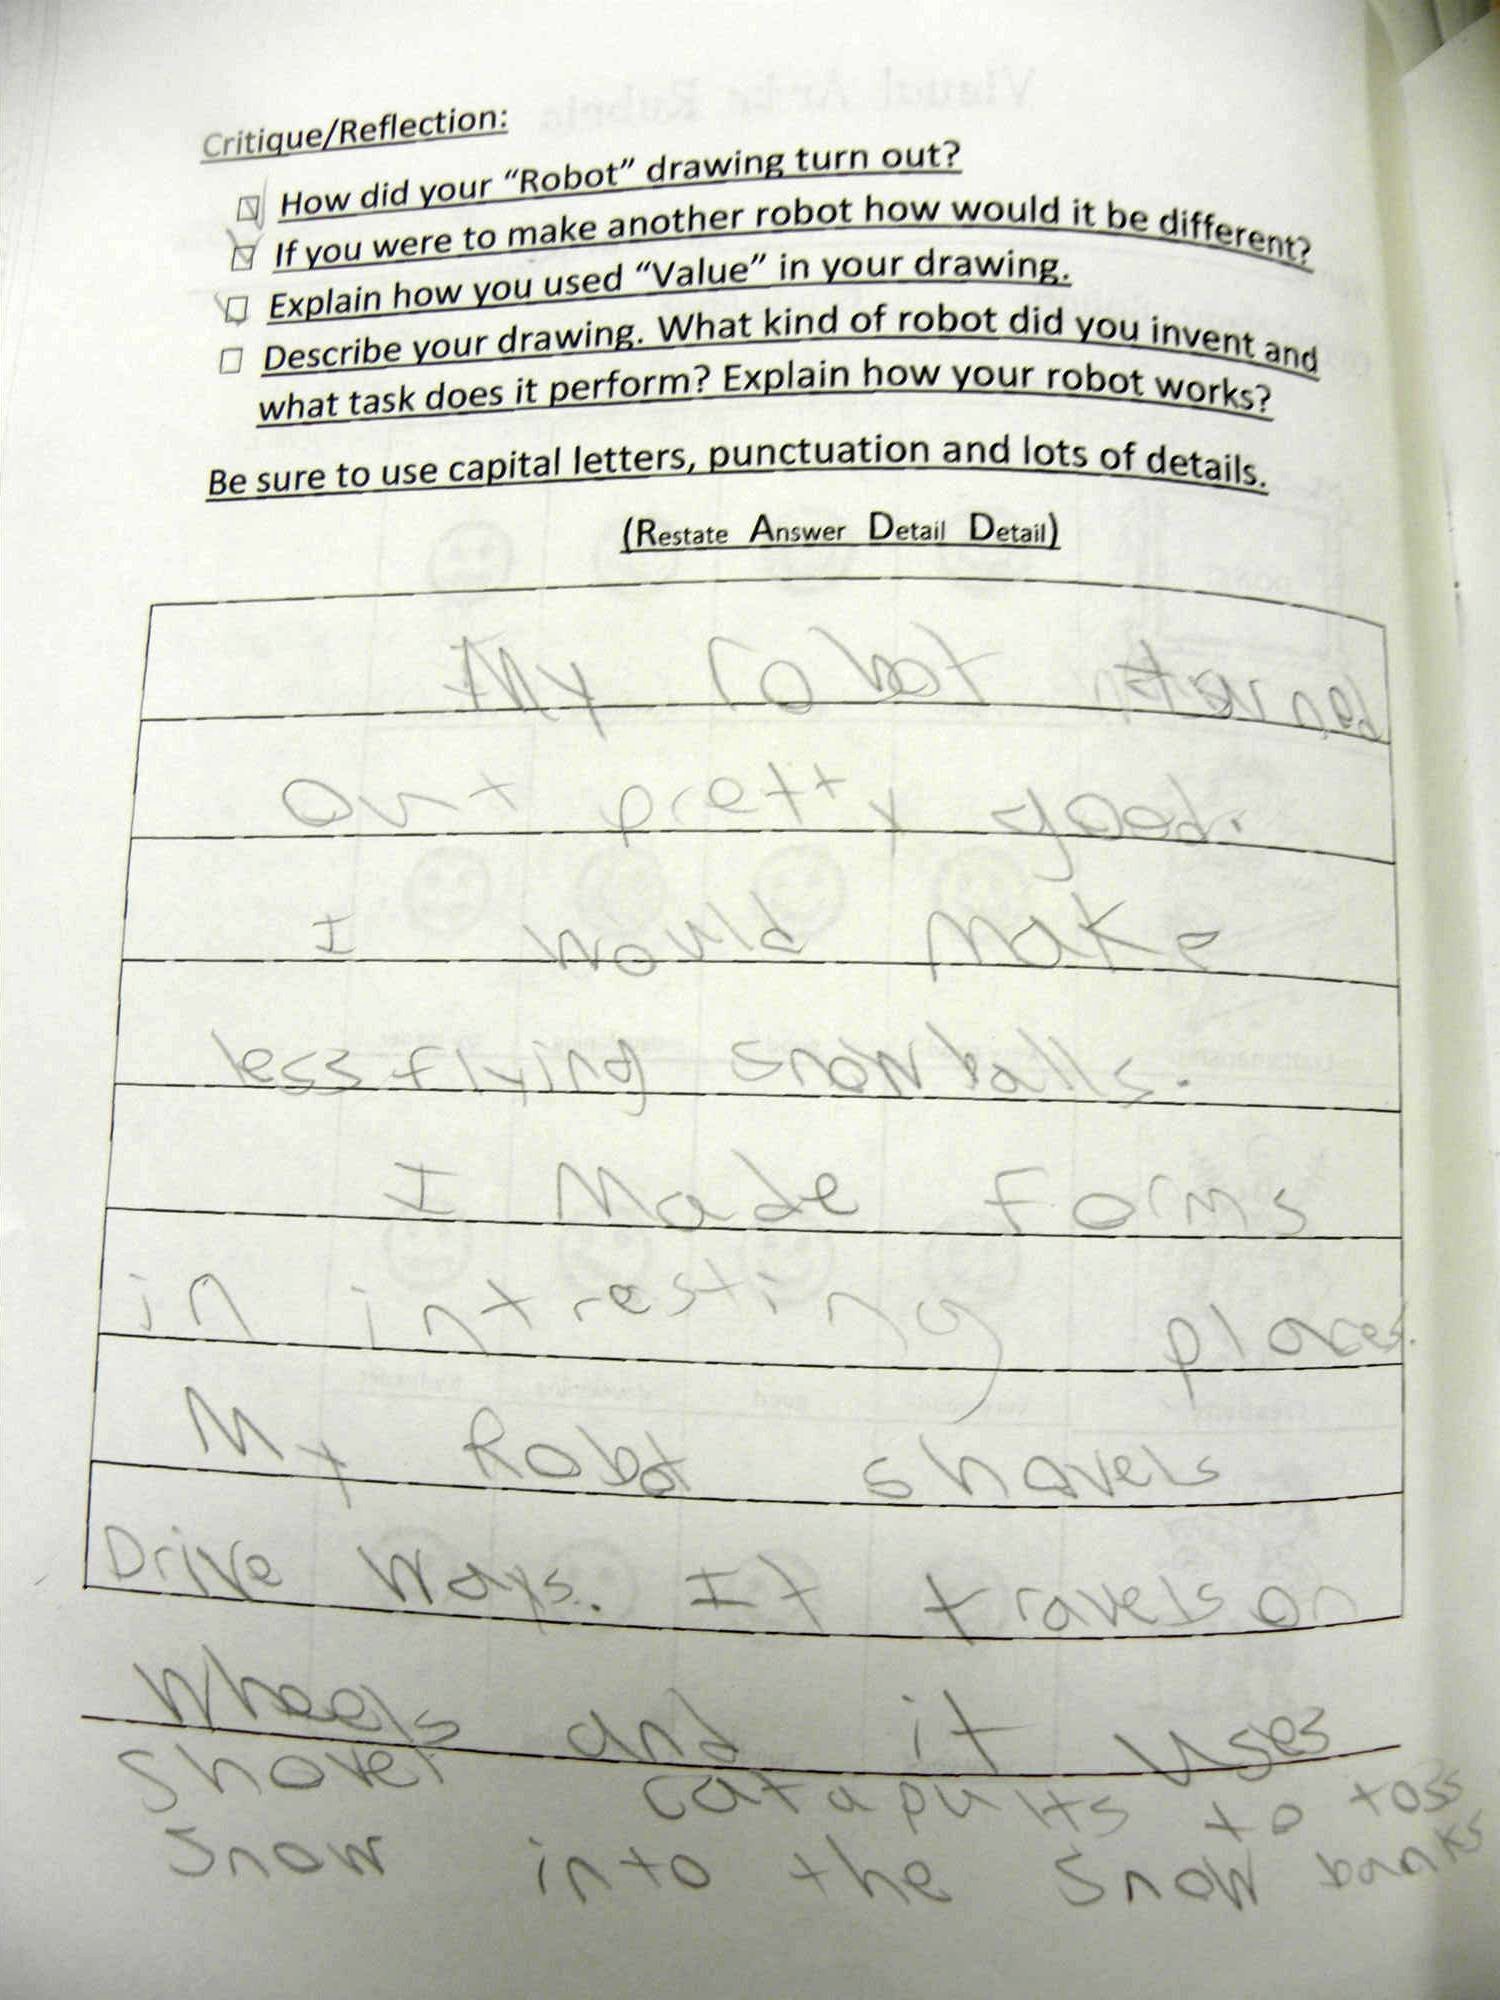 Critique/Reflection:
How did your “Robot” drawing turn out?
If you were to make another robot how would it be different?
Explain how you used “Value” in your drawing.
Describe your drawing. What kind of robot did you invent and
what task does it perform? Explain how your robot works?
Be sure to use capital letters, punctuation and lots of details.
(Restate Answer Detail Detail)
My robot turned
out pretty good.
I would make
less flying snowballs.
I Made forms
in intresting places.
My Robot shovels
Drive Ways. It travels on
Wheels and it uses
Shovel catapults to toss
Snow into the Snow banks